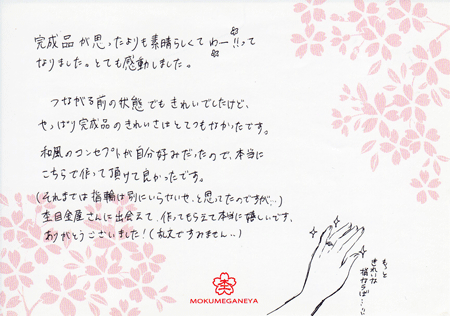 完成品が思ったよりも素晴らしくてわー!!って
なりました。とても感動しました。
つながる前の状態でもきれいでしたけど、
やっぱり完成品のきれいさはとてつもなかったです。
和風のコンセプトが自分好みだったので、本当に
こちらで作って頂けて良かったです。
(それまでは指輪は別にいらないせ、と思ってたのですが…)
杢目金屋さんに出会えて、作ってもらえて本当に嬉しいです。
ありがとうございました!(乱文ですみません…)
もっと
きれいな
指ならば……!
杢
MOKUMEGANEYA